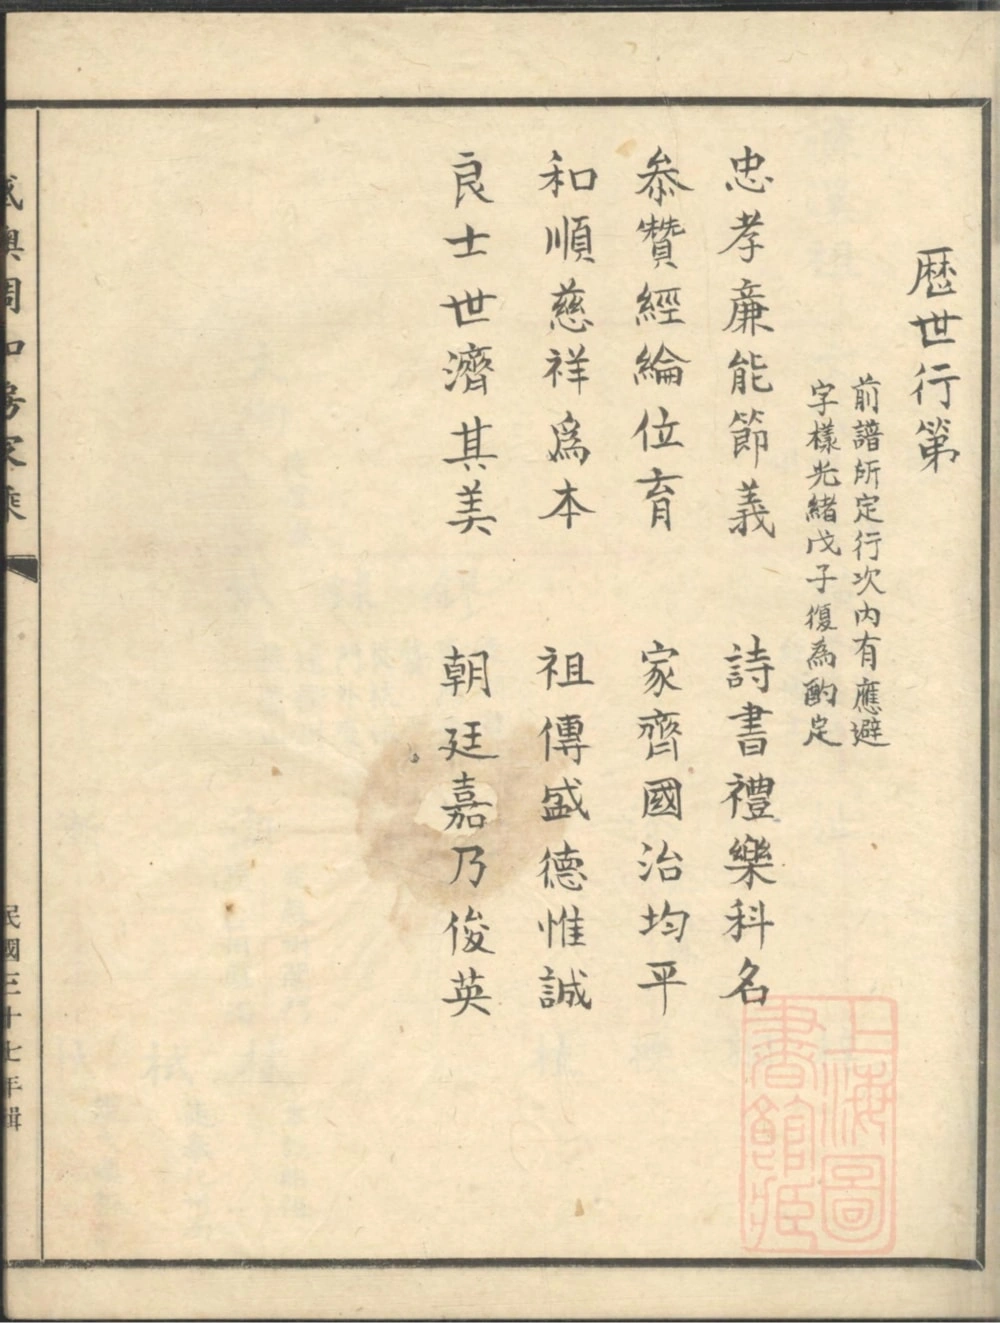 歷世行第
前譜所定行次內有應避
字樣光緒戊子復為酌定
忠孝廉能節義 詩書禮樂科名
叅贊經綸位育 家齊國治均平
和順慈祥爲本 祖傳盛德惟誠
良士世濟其美 朝廷嘉乃俊英
民國三十七年輯
上海圖
書館臧